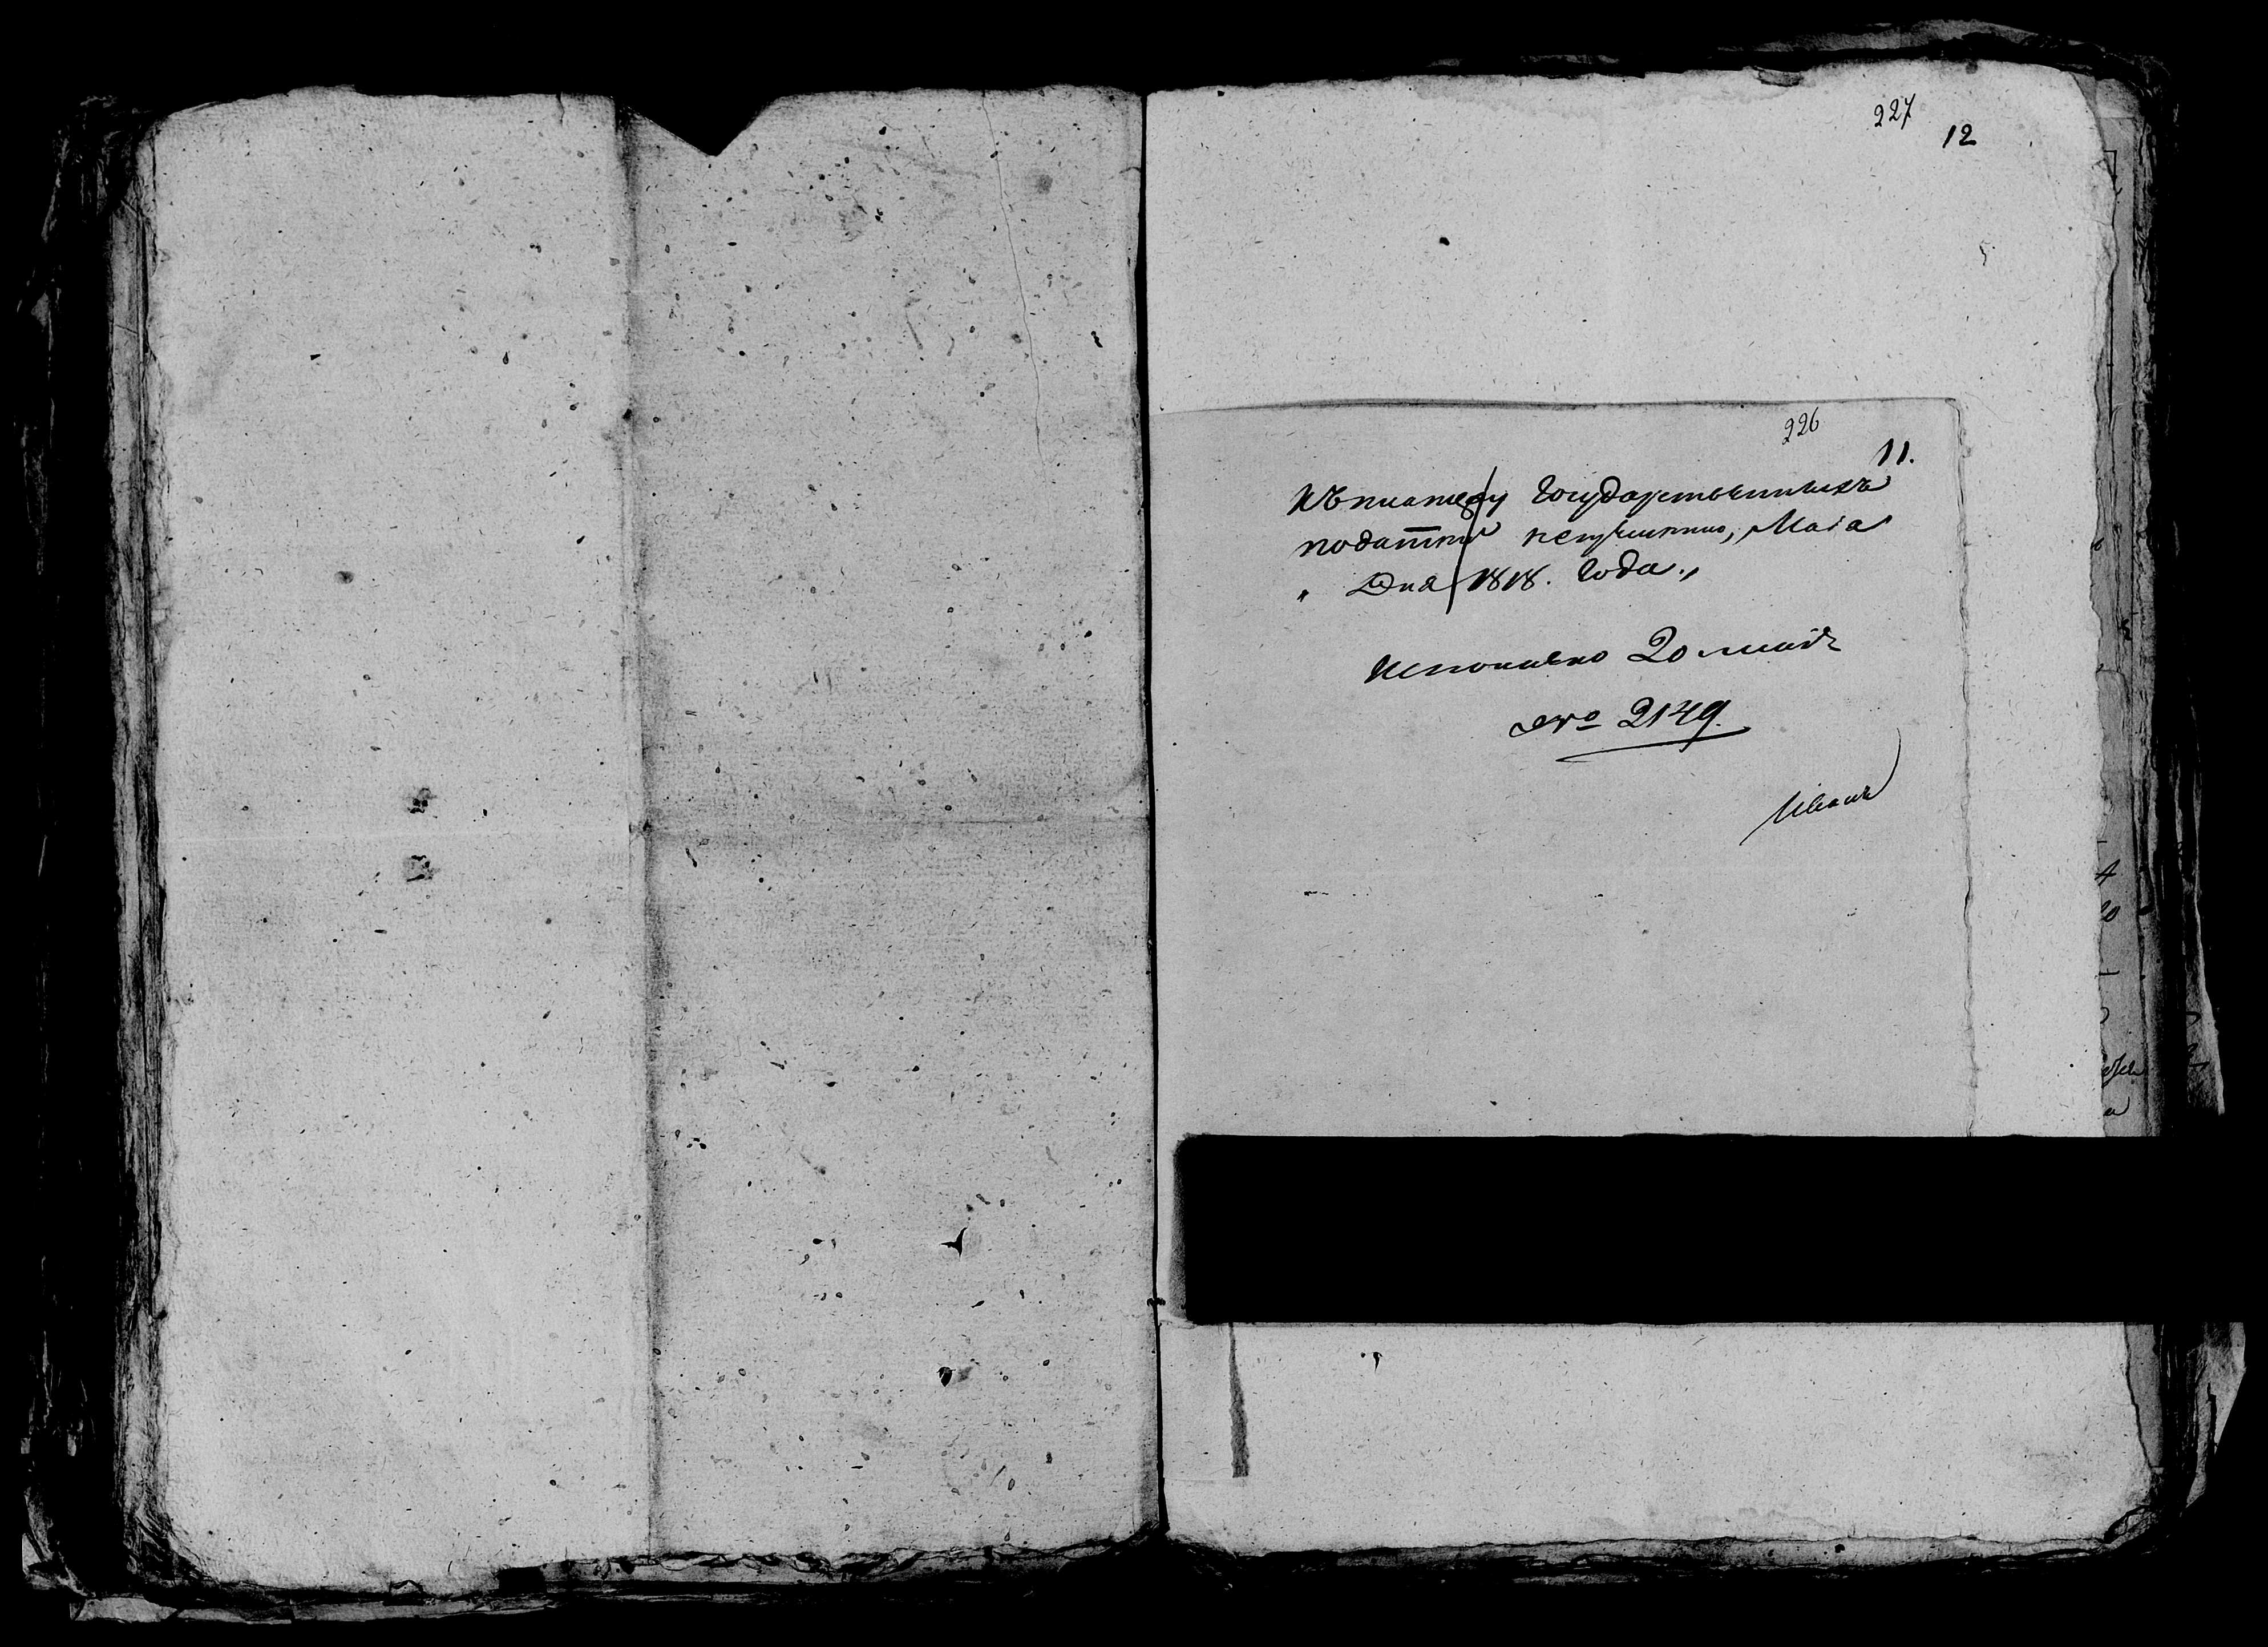 227
12
226
11.
Къ платежу Государственныхъ
податей неупустино, Маіа
„ Дня 1818. Года.„
Исполнено 20 маій
№ 2149.
Иванъ